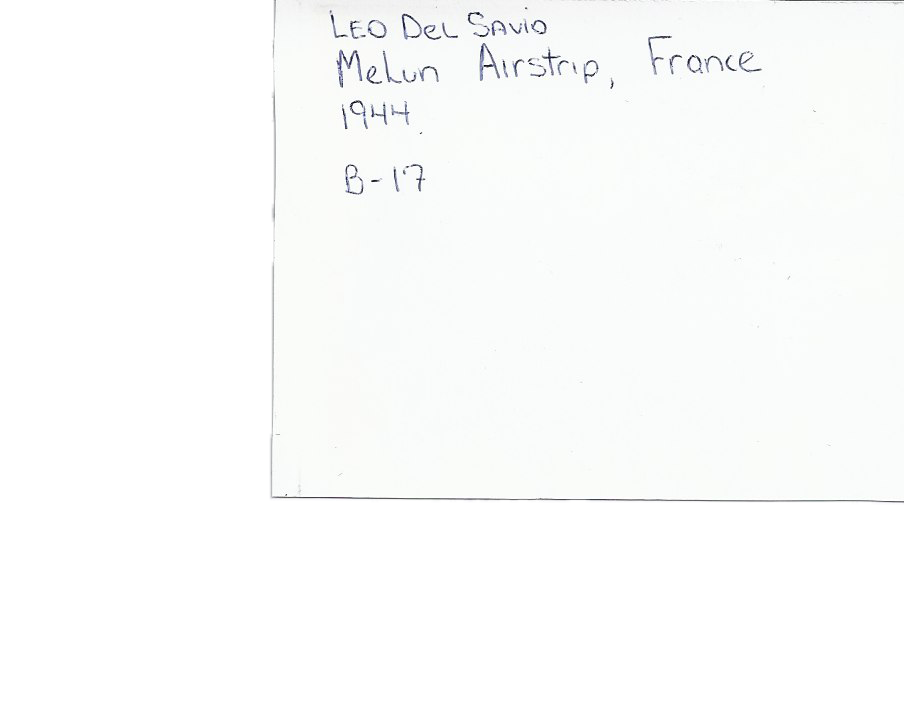 LEO DEL SAVIO
Melun Airstrip, France
1944
B-17